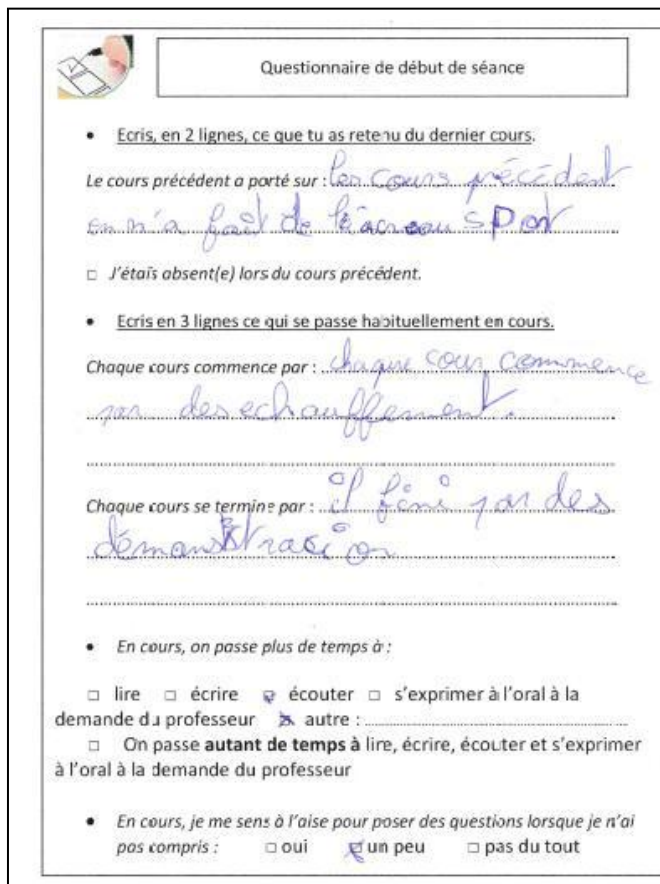 Questionnaire de début de séance
• Ecris, en 2 lignes, ce que tu as retenu du dernier cours.
Le cours précédent a porté sur : les cours précédent
en n'a fait de l'acreau sport
□ J'étais absent(e) lors du cours précédent.
• Ecris en 3 lignes ce qui se passe habituellement en cours.
Chaque cours commence par : chaque cour commence
par des echauffement.
Chaque cours se termine par : il fini par des
démonstracion
• En cours, on passe plus de temps à :
□ lire □ écrire ☑ écouter □ s'exprimer à l'oral à la
demande du professeur ☒ autre :
□ On passe autant de temps à lire, écrire, écouter et s'exprimer
à l'oral à la demande du professeur
• En cours, je me sens à l'aise pour poser des questions lorsque je n'ai
pas compris : □ oui ☒ un peu □ pas du tout